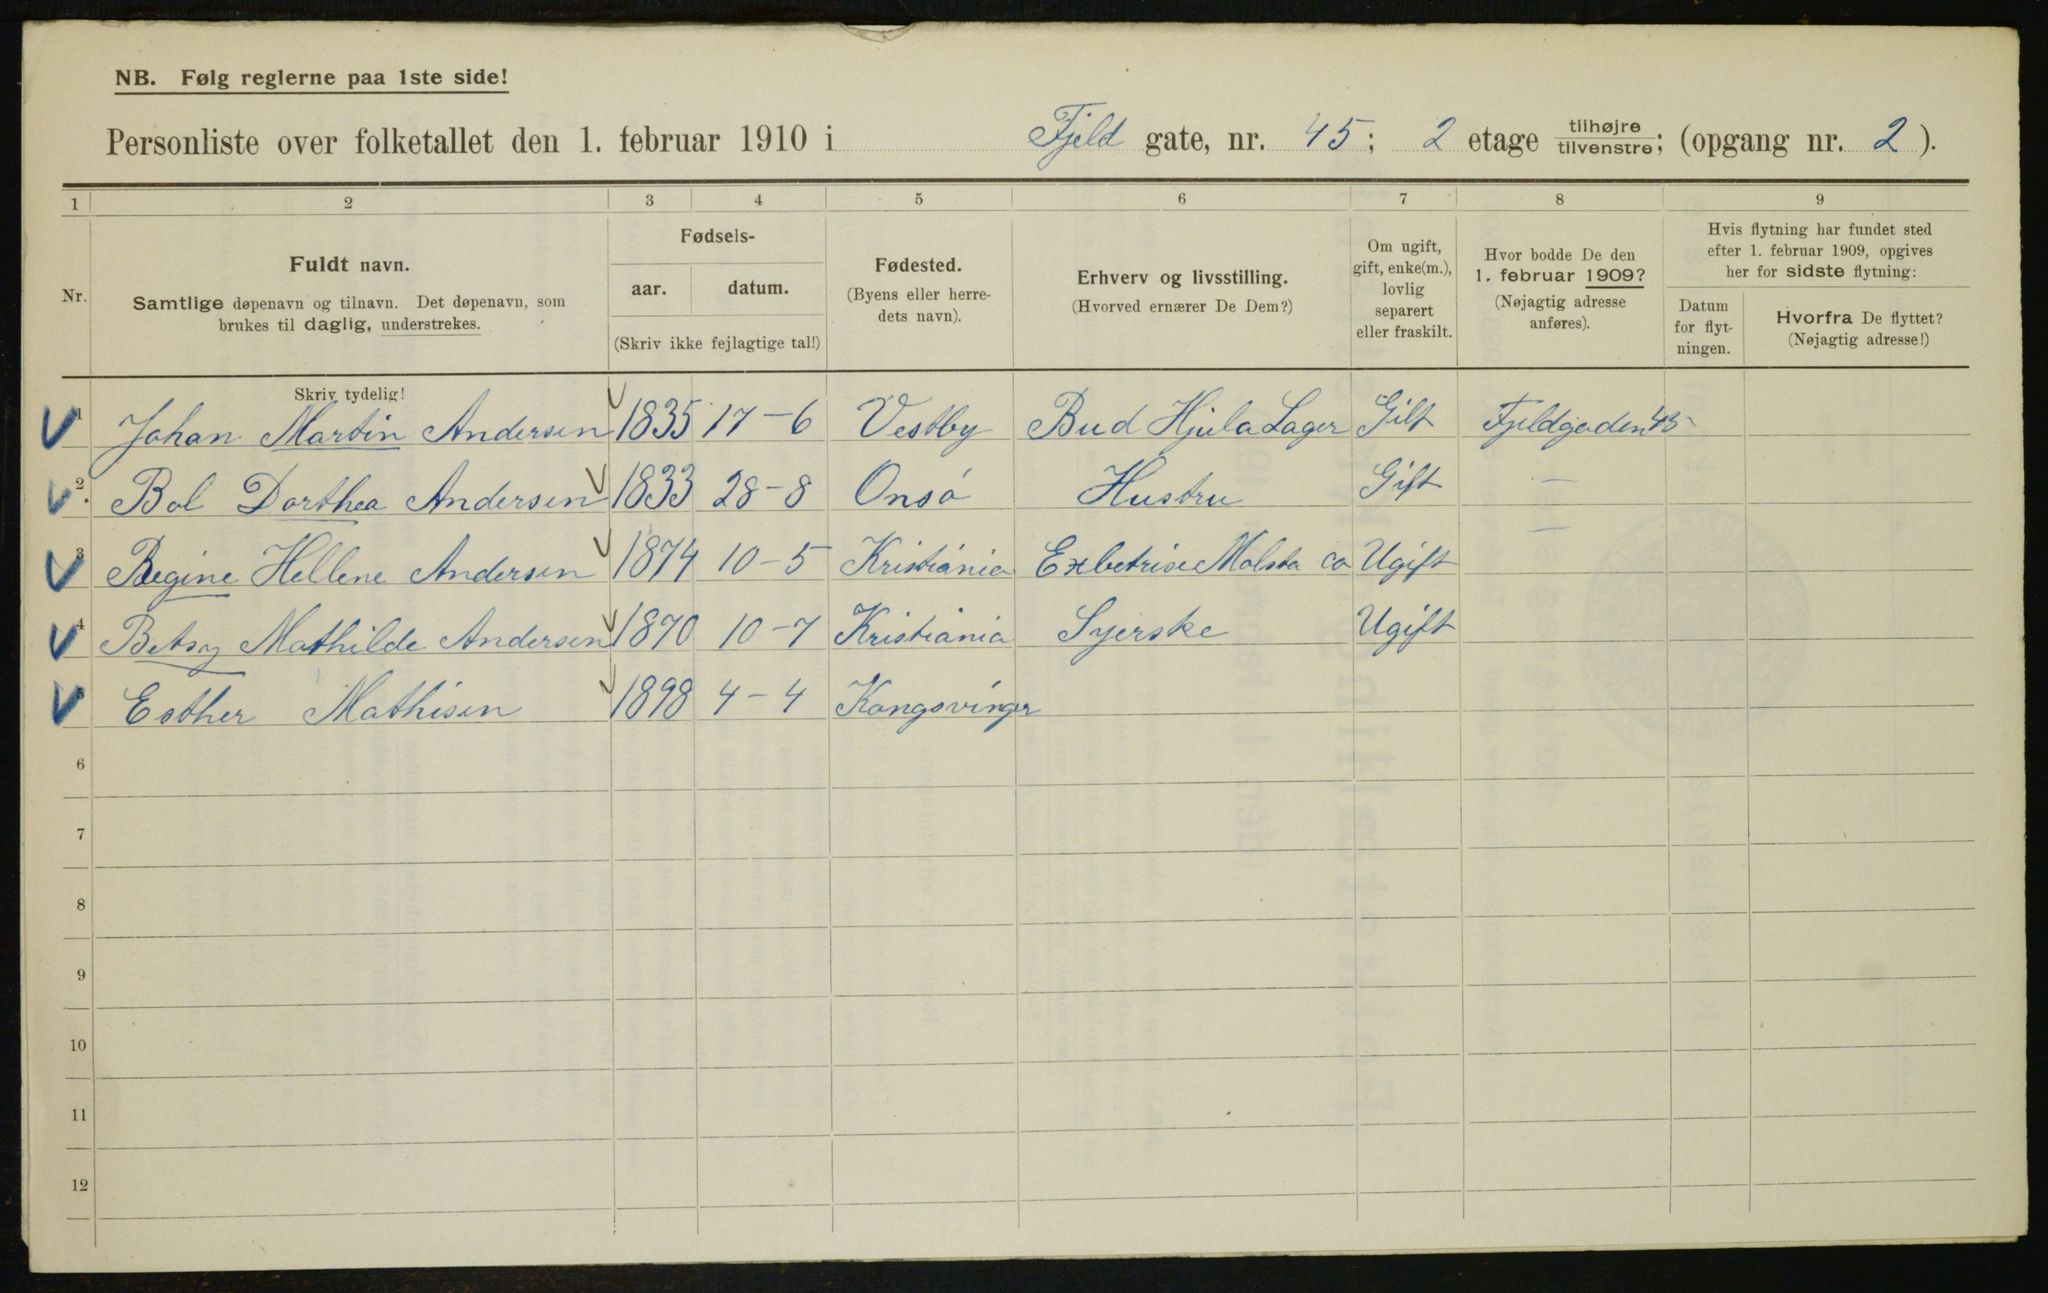 NB. Følg reglerne paa 1ste side!
Personliste over folketallet den 1. februar 1910 i Fjeld gate, nr. 45; 2 etage tilhøjre tilvenstre; (opgang nr. 2).
1 2 3 4 5 6 7 8 9
Nr.
Fuldt navn.
Samtlige døpenavn og tilnavn. Det døpenavn, som
brukes til daglig, understrekes.
Fødsels-
aar. datum.
(Skriv ikke fejlagtige tal!)
Fødested.
(Byens eller herre-
dets navn).
Erhverv og livsstilling.
(Hvorved ernærer De Dem?)
Om ugift,
gift, enke(m.),
lovlig
separert
eller fraskilt.
Hvor bodde De den
1. februar 1909?
(Nøjagtig adresse
anføres).
Hvis flytning har fundet sted
efter 1. februar 1909, opgives
her for sidste flytning:
Datum
for flyt-
ningen.
Hvorfra De flyttet?
(Nøjagtig adresse!)
Skriv tydelig!
1 Johan Martin Andersen 1835 17-6 Vestby Bud Hjula Lager Gift Fjeldgaden 45
2 Bol Dorthea Andersen 1833 28-8 Onsø Hustru Gift —
3 Regine Hellene Andersen 1874 10-5 Kristiania Exbetrise Molsta co Ugift —
4 Betsy Mathilde Andersen 1870 10-7 Kristiania Syerske Ugift
5 Esther Mathisen 1898 4-4 Kongsvinger
6
7
8
9
10
11
12